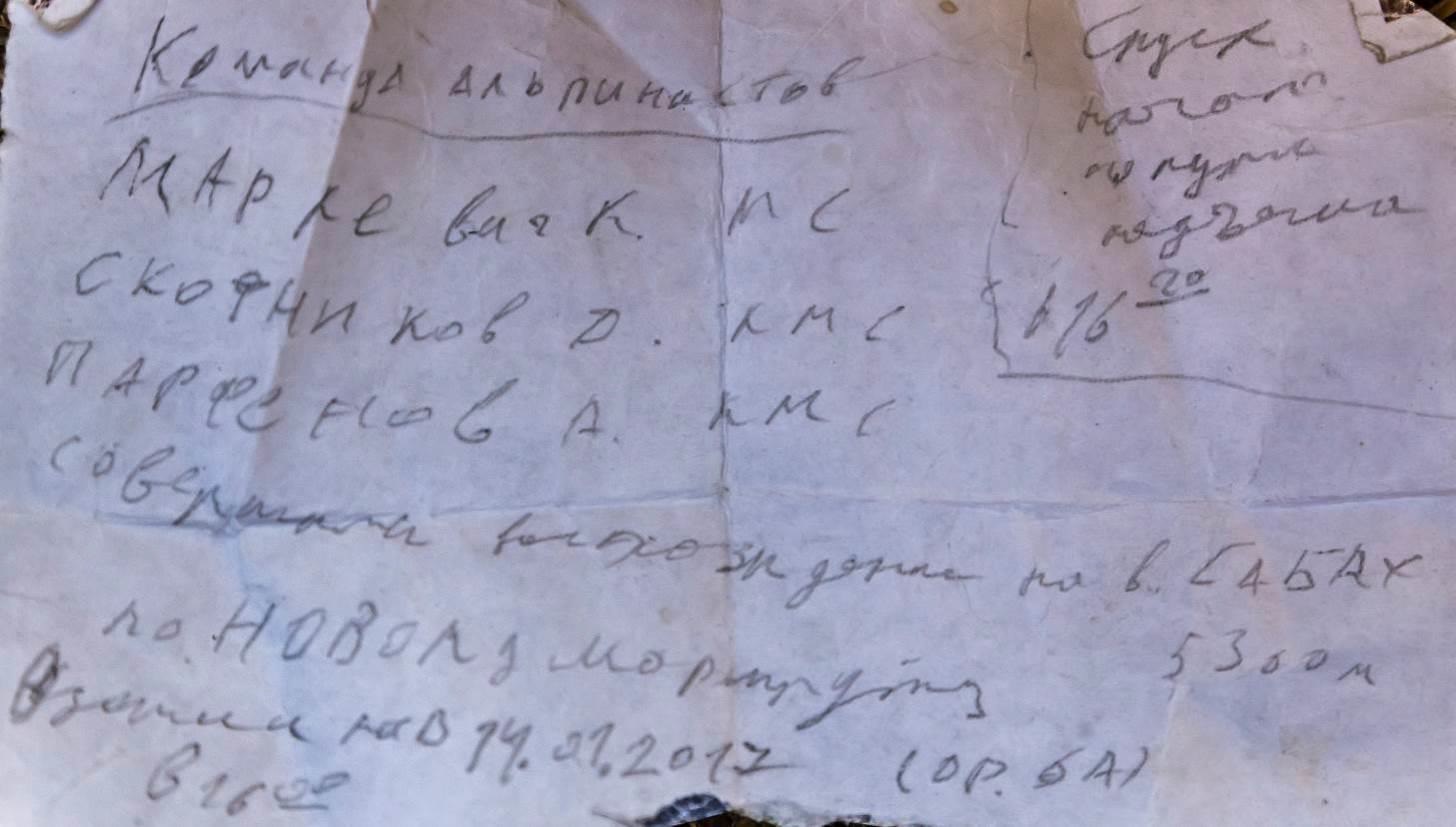 Команда альпинистов
Маркевич К. МС
Скотников О. КМС
Парфенов А. КМС
совершила восхождение на в. САБАХ
по новому маршруту 5300 м
Взошли на В 14.01.2017 (ор. 6А)
в 16 00
Спуск
начат
по пути
подъема
в 16 20